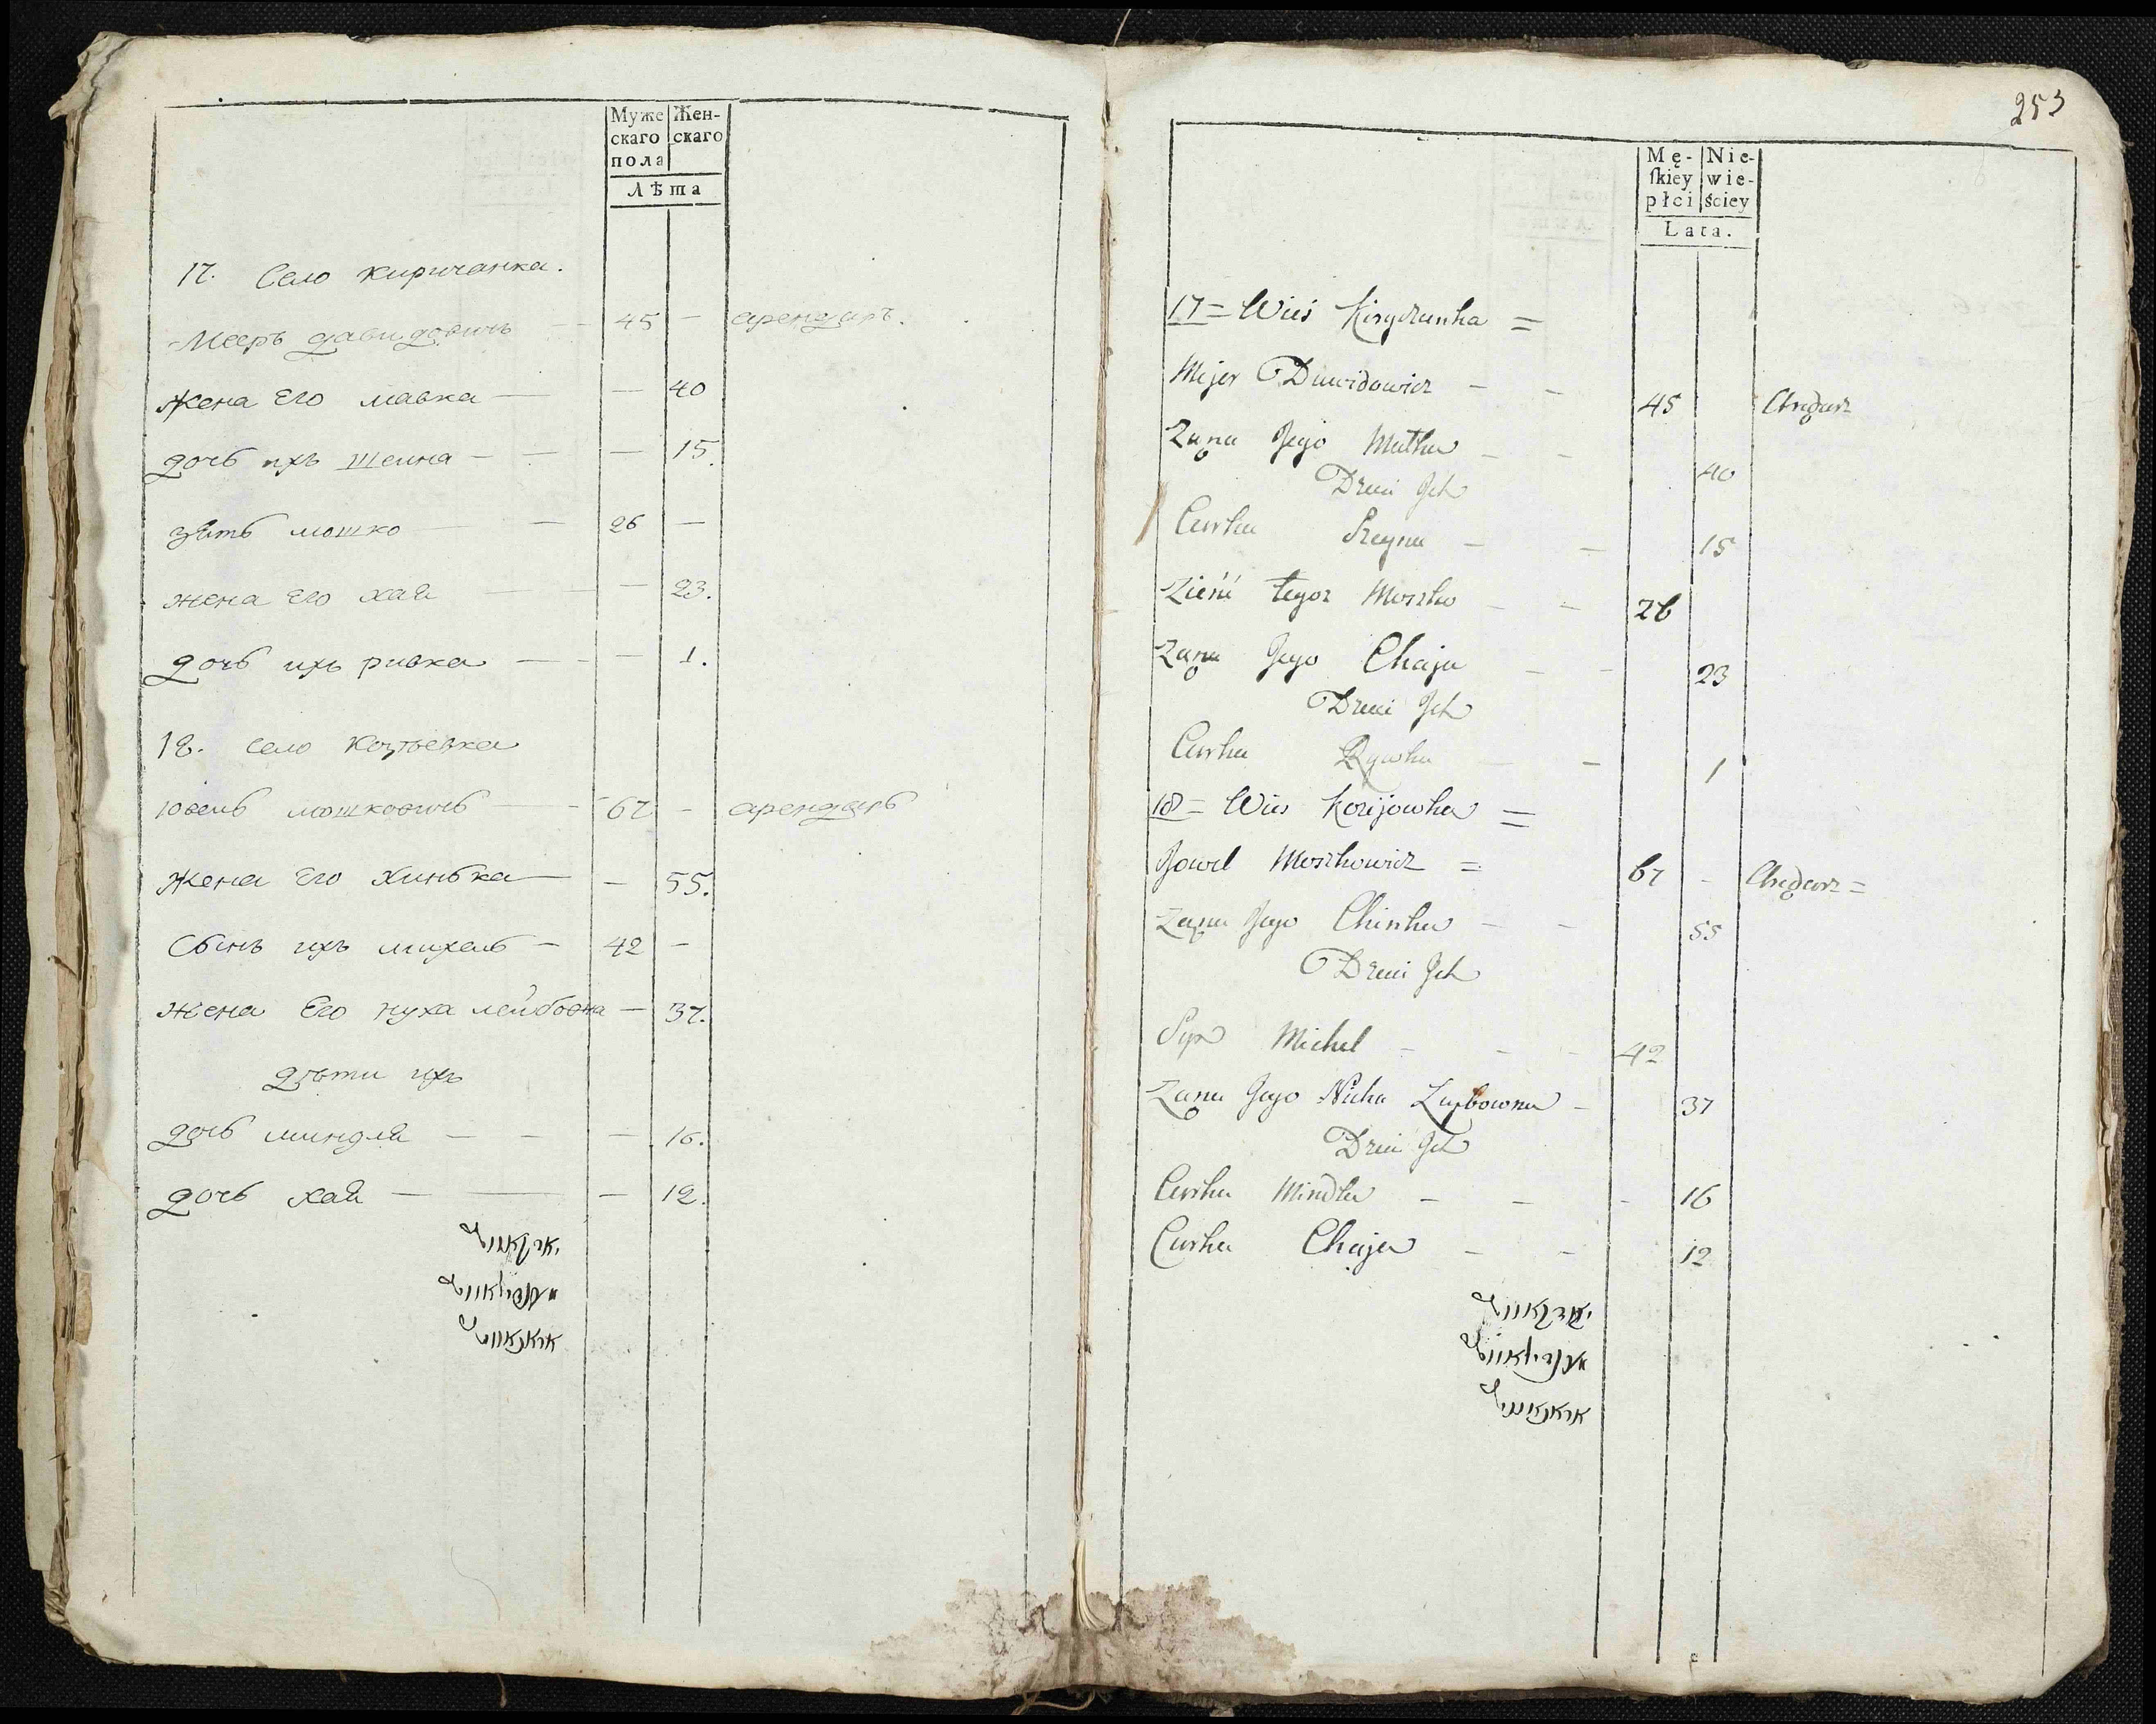 Муже
скаго
пола
Жен-
скаго
Лѣта
17. Село Киричанка.
Мееръ давидовичь — 45 — арендарь.
Жена Его мавка — — 40
дочь ихъ шеина — — — 15.
зять мошко — — 26 —
жена Его хая — — — 23.
дочь ихъ ривка — — — 1.
18. село Козіевка
Iовель мошковичь — — 67 — арендарь
Жена Его Хинька — — 55.
Сынъ ихъ михель — 42 —
жена Его нуха лейбовна — 37.
дѣти ихъ
дочь миндля — — — 16.
дочь хая — — — 12.
253
Mę-
ſkiey
płci
Nie-
wie-
ściey
Lata.
17 = Wieś Kiryczanka =
Mejer Dawidowicz — — 45 Arędarz
Żona Jego Matka — — 40
Dzieci Ich
Curka Szeyna — — 15
Zieńć tegoz Moszko — — 26
Żona Jego Chaja — — 23
Dzieci Ich
Curka Rywka — — 1
18 = Wieś Kozijowka =
Jowel Moszkowicz = 67 - Arędarz =
Żona Jego Chinka — — 55
Dzieci Ich
Syn Michel — — — 42
Żona Jego Nucha Leybowna — 37
Dzieci Ich
Curka Mindla — — — 16
Curka Chaja — — 12